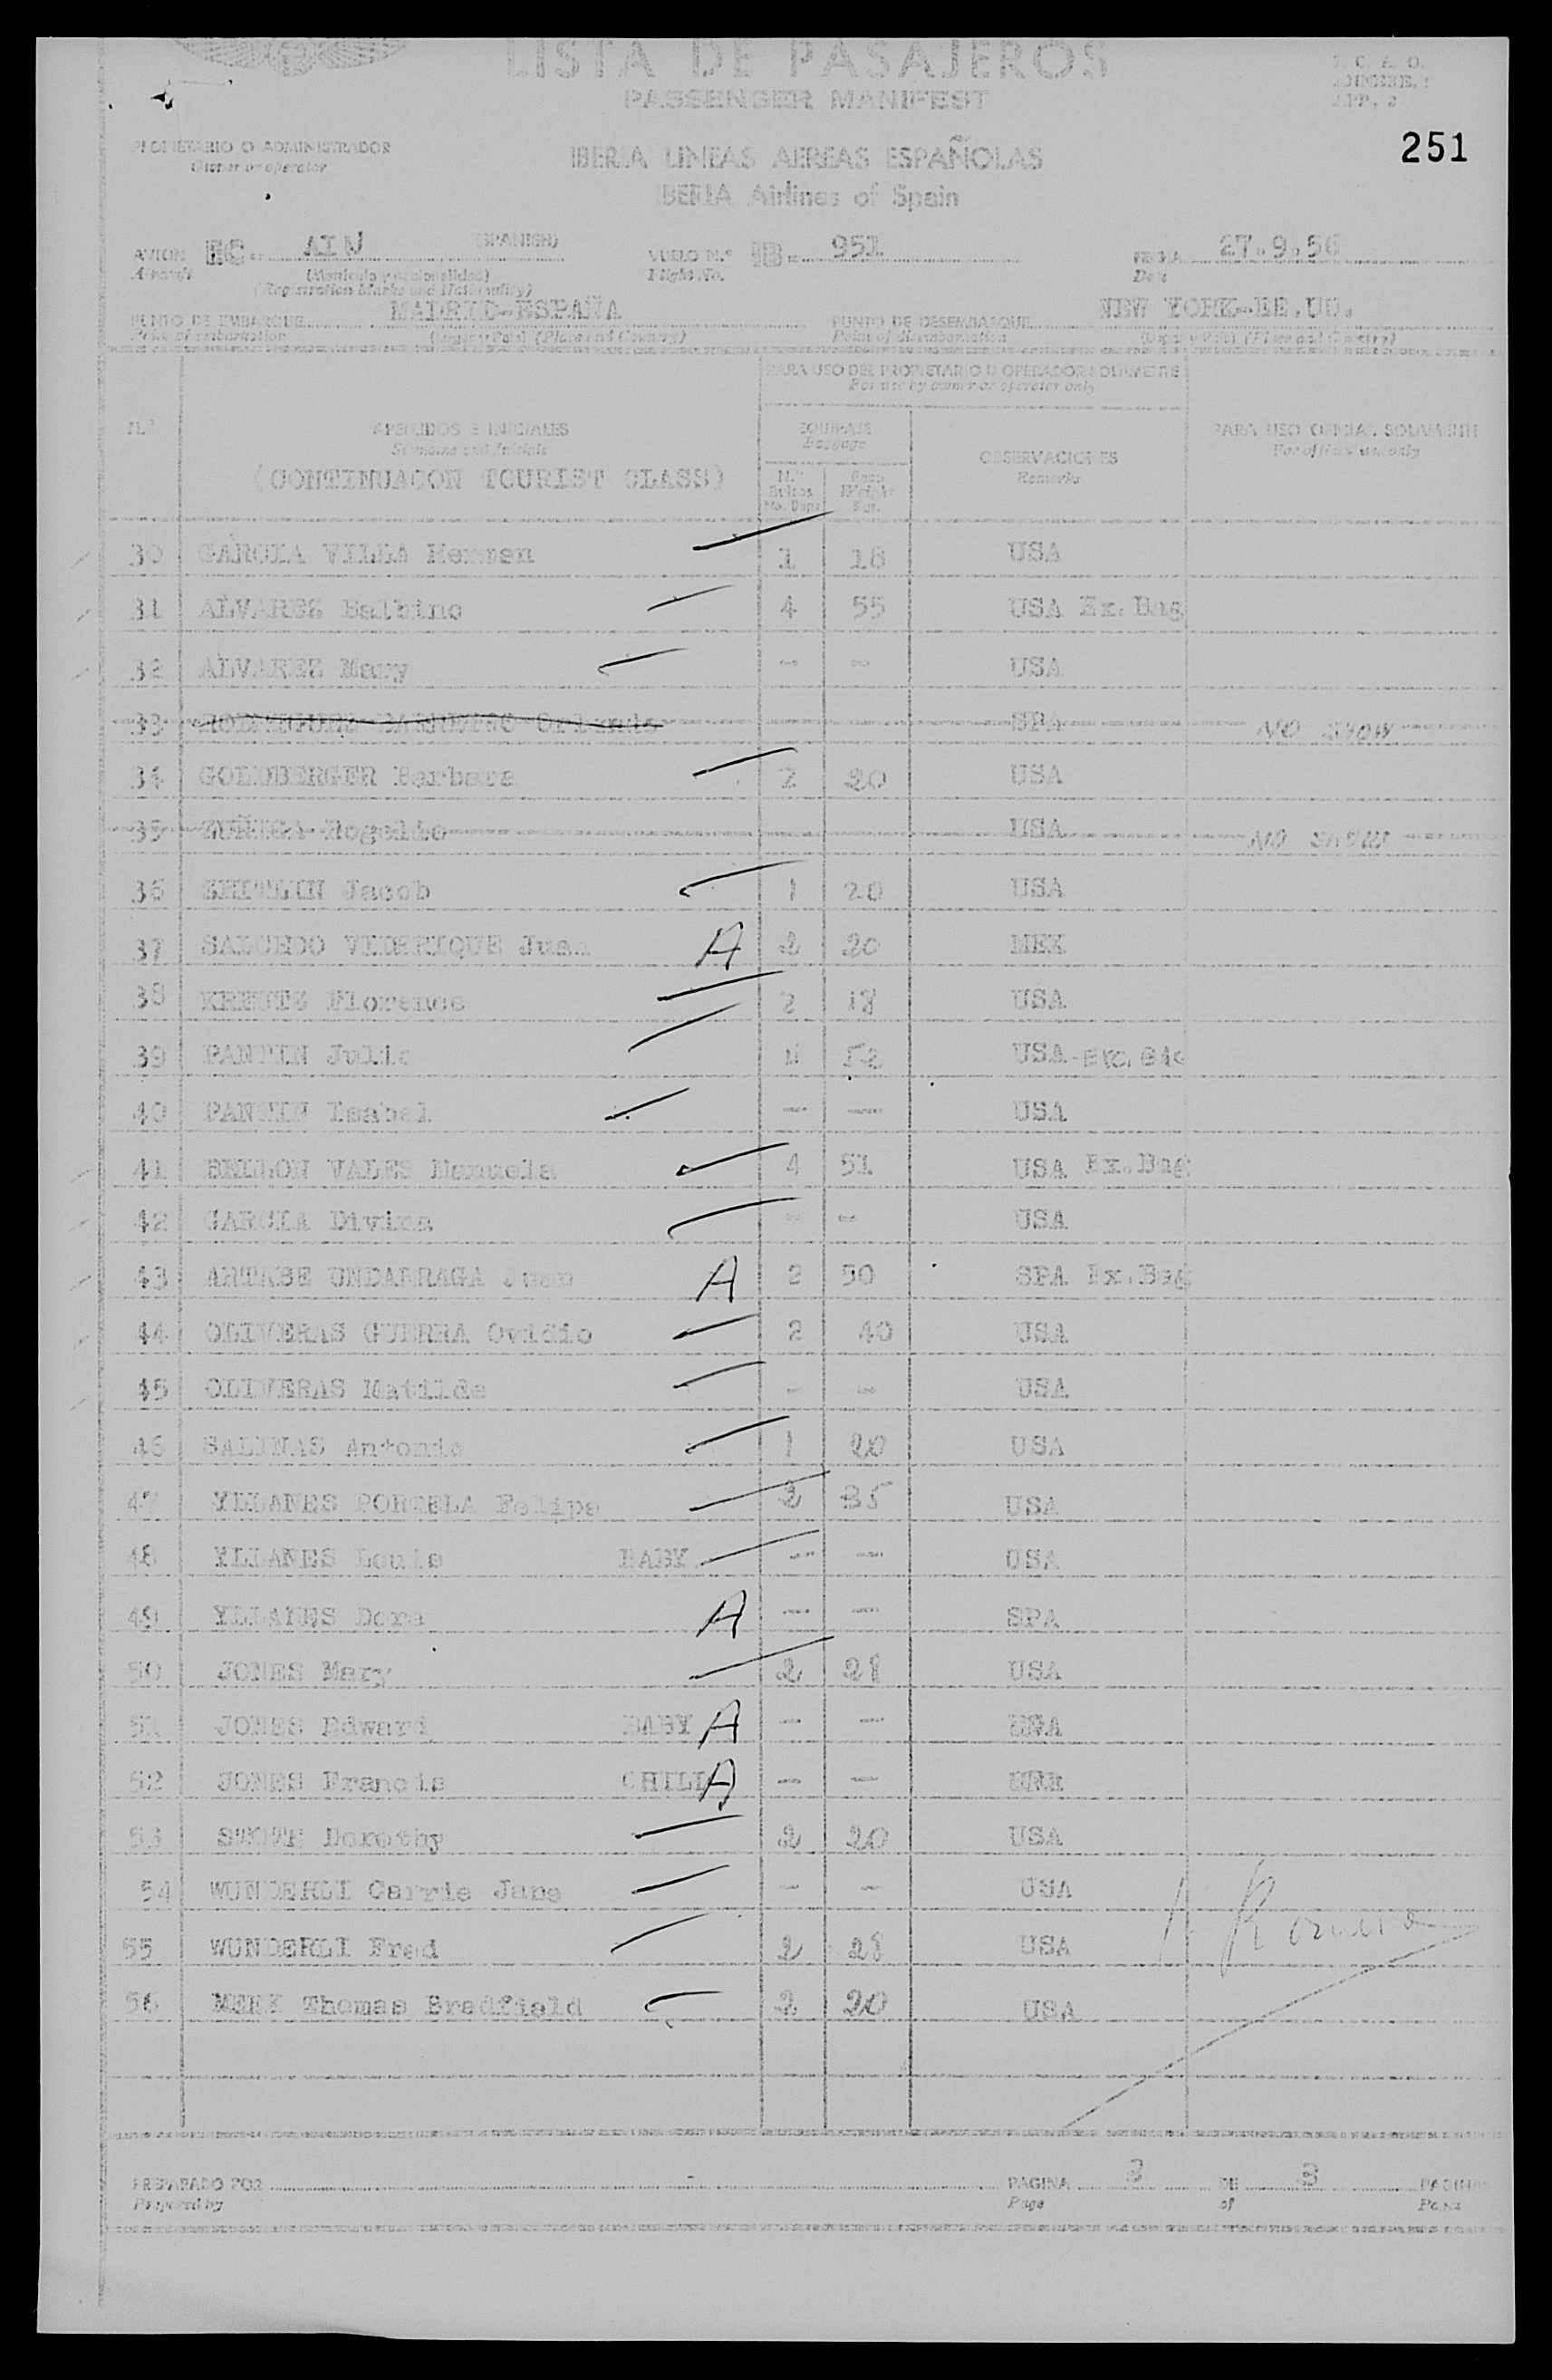 LISTA DE PASAJEROS
PASSENGER MANIFEST
I. C. A. O.
251
PROPIETARIO O ADMINISTRADOR
Owner or operator
IBERIA LINEAS AEREAS ESPAÑOLAS
IBERIA Airlines of Spain
AVION EC- AIN (SPANISH) VUELO N.º IB- 951 FECHA 27.9.56
Aircraft (Matrícula y nacionalidad) Flight No. Date
(Registration Marks and Nationality)
PUNTO DE EMBARQUE MADRID-ESPAÑA PUNTO DE DESEMBARQUE NEW YORK-EE.UU.
Point of embarkation (Lugar y País) (Place and Country) Point of disembarkation (Lugar y País) (Place and Country)
PARA USO DEL PROPIETARIO U OPERADOR SOLAMENTE
For use by owner or operator only
N.º APELLIDOS E INICIALES EQUIPAJE OBSERVACIONES PARA USO OFICIAL SOLAMENTE
Surname and Initials Baggage Remarks For official use only
(CONTINUACON TOURIST CLASS) N.º Bultos Peso Weight
No. Bags Kgr.
30 GARCIA VILLA Herman 1 18 USA
31 ALVARES Balbino 4 55 USA Ex. Bag
32 ALVAREZ Mary - - USA
33 SPA NO SHOW
34 GOLDBERGER Barbara 2 20 USA
35 Rogelio USA NO SHOW
36 SHITLIN Jacob 1 20 USA
37 SALCEDO Juan A 2 20 MEX
38 KREUTZ Florence 2 18 USA
39 PANTIN Julio 4 52 USA - exc. bag
40 PANTIN Isabel - - USA
41 BELLON VALES Manuela 4 51 USA Ex. Bag
42 GARCIA Divina - - USA
43 UNDARRAGA Juan A 2 50 SPA Ex. Bag
44 OLIVERAS GUERRA Ovidio 2 40 USA
45 OLIVERAS Matilde - - USA
46 SALINAS Antonio 1 20 USA
47 YLLANES PORTELA Felipe 2 35 USA
48 YLLANES Louis BABY - - USA
49 YLLANES Dora A - - SPA
50 JONES Mary 2 28 USA
51 JONES Edward BABY A - - USA
52 JONES Francis CHILD A - -
53 Dorothy 2 20 USA
54 WUNDERLI Carrie Jane - - USA
55 WUNDERLI Fred 2 28 USA
56 MERK Thomas Bradfield 2 20 USA
PREPARADO POR PAGINA 3 DE 3 PAGINAS
Prepared by Page of Pages